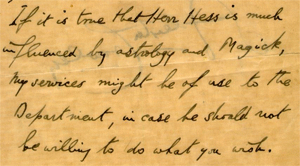 If it is true that Herr Hess is much
influenced by astrology and Magick,
my services might be of use to the
Department, in case he should not
be willing to do what you wish.